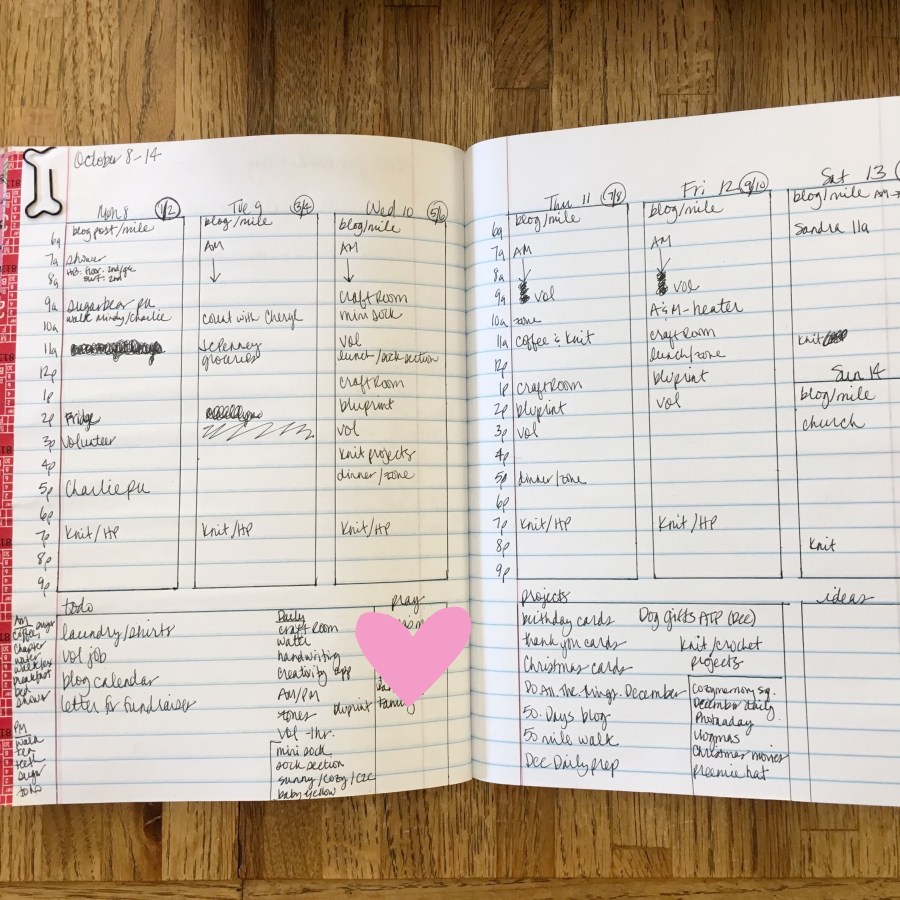 October 8-14
Mon 8 1/2
6a blog post/mile
7a shower
8a
9a Sugarbear pu
10a walk Mindy/Charlie
11a
12p
1p
2p Fridge
3p Volunteer
4p
5p Charlie pu
6p
7p Knit/HP
8p
9p
Tue 9 3/4
blog/mile
AM
count with Cheryl
JCPenney
groceries
Knit/HP
Wed 10 5/6
blog/mile
AM
craft Room
mini sock
vol
lunch/sock section
craft Room
bluprint
vol
knit projects
dinner/zone
Knit/HP
Thu 11 7/8
6a blog/mile
7a AM
8a
9a vol
10a zone
11a coffee & knit
12p
1p craft Room
2p bluprint
3p vol
4p
5p dinner/zone
6p
7p Knit/HP
8p
9p
Fri 12 9/10
blog/mile
AM
vol
A&M-heater
craft Room
lunch/zone
bluprint
vol
Knit/HP
Sat 13
blog/mile AM
Sandra 11a
knit
Sun 14
blog/mile
church
Knit
AM
sugar
coffee
chapter
water
breakfast
bed
shower
PM
walk
tea
teeth
sugar
todo
todo
laundry/shirts
vol job
blog calendar
letter for fundraiser
Daily
craft Room
water
handwriting
creativity app
AM/PM
zones
bluprint
vol -1hr.
mini sock
sock section
sunny/cozy/C2C
baby yellow
pray
family
projects
birthday cards
thank you cards
Christmas cards
Do.All.The.Things.December
50 Days blog
50 mile walk
Dec Daily prep
Dog Gifts ATP (Dec)
knit/crochet
projects
Cozymemory sq.
December daily
Photoaday
Vlogmas
Christmas movies
preemie hat
ideas